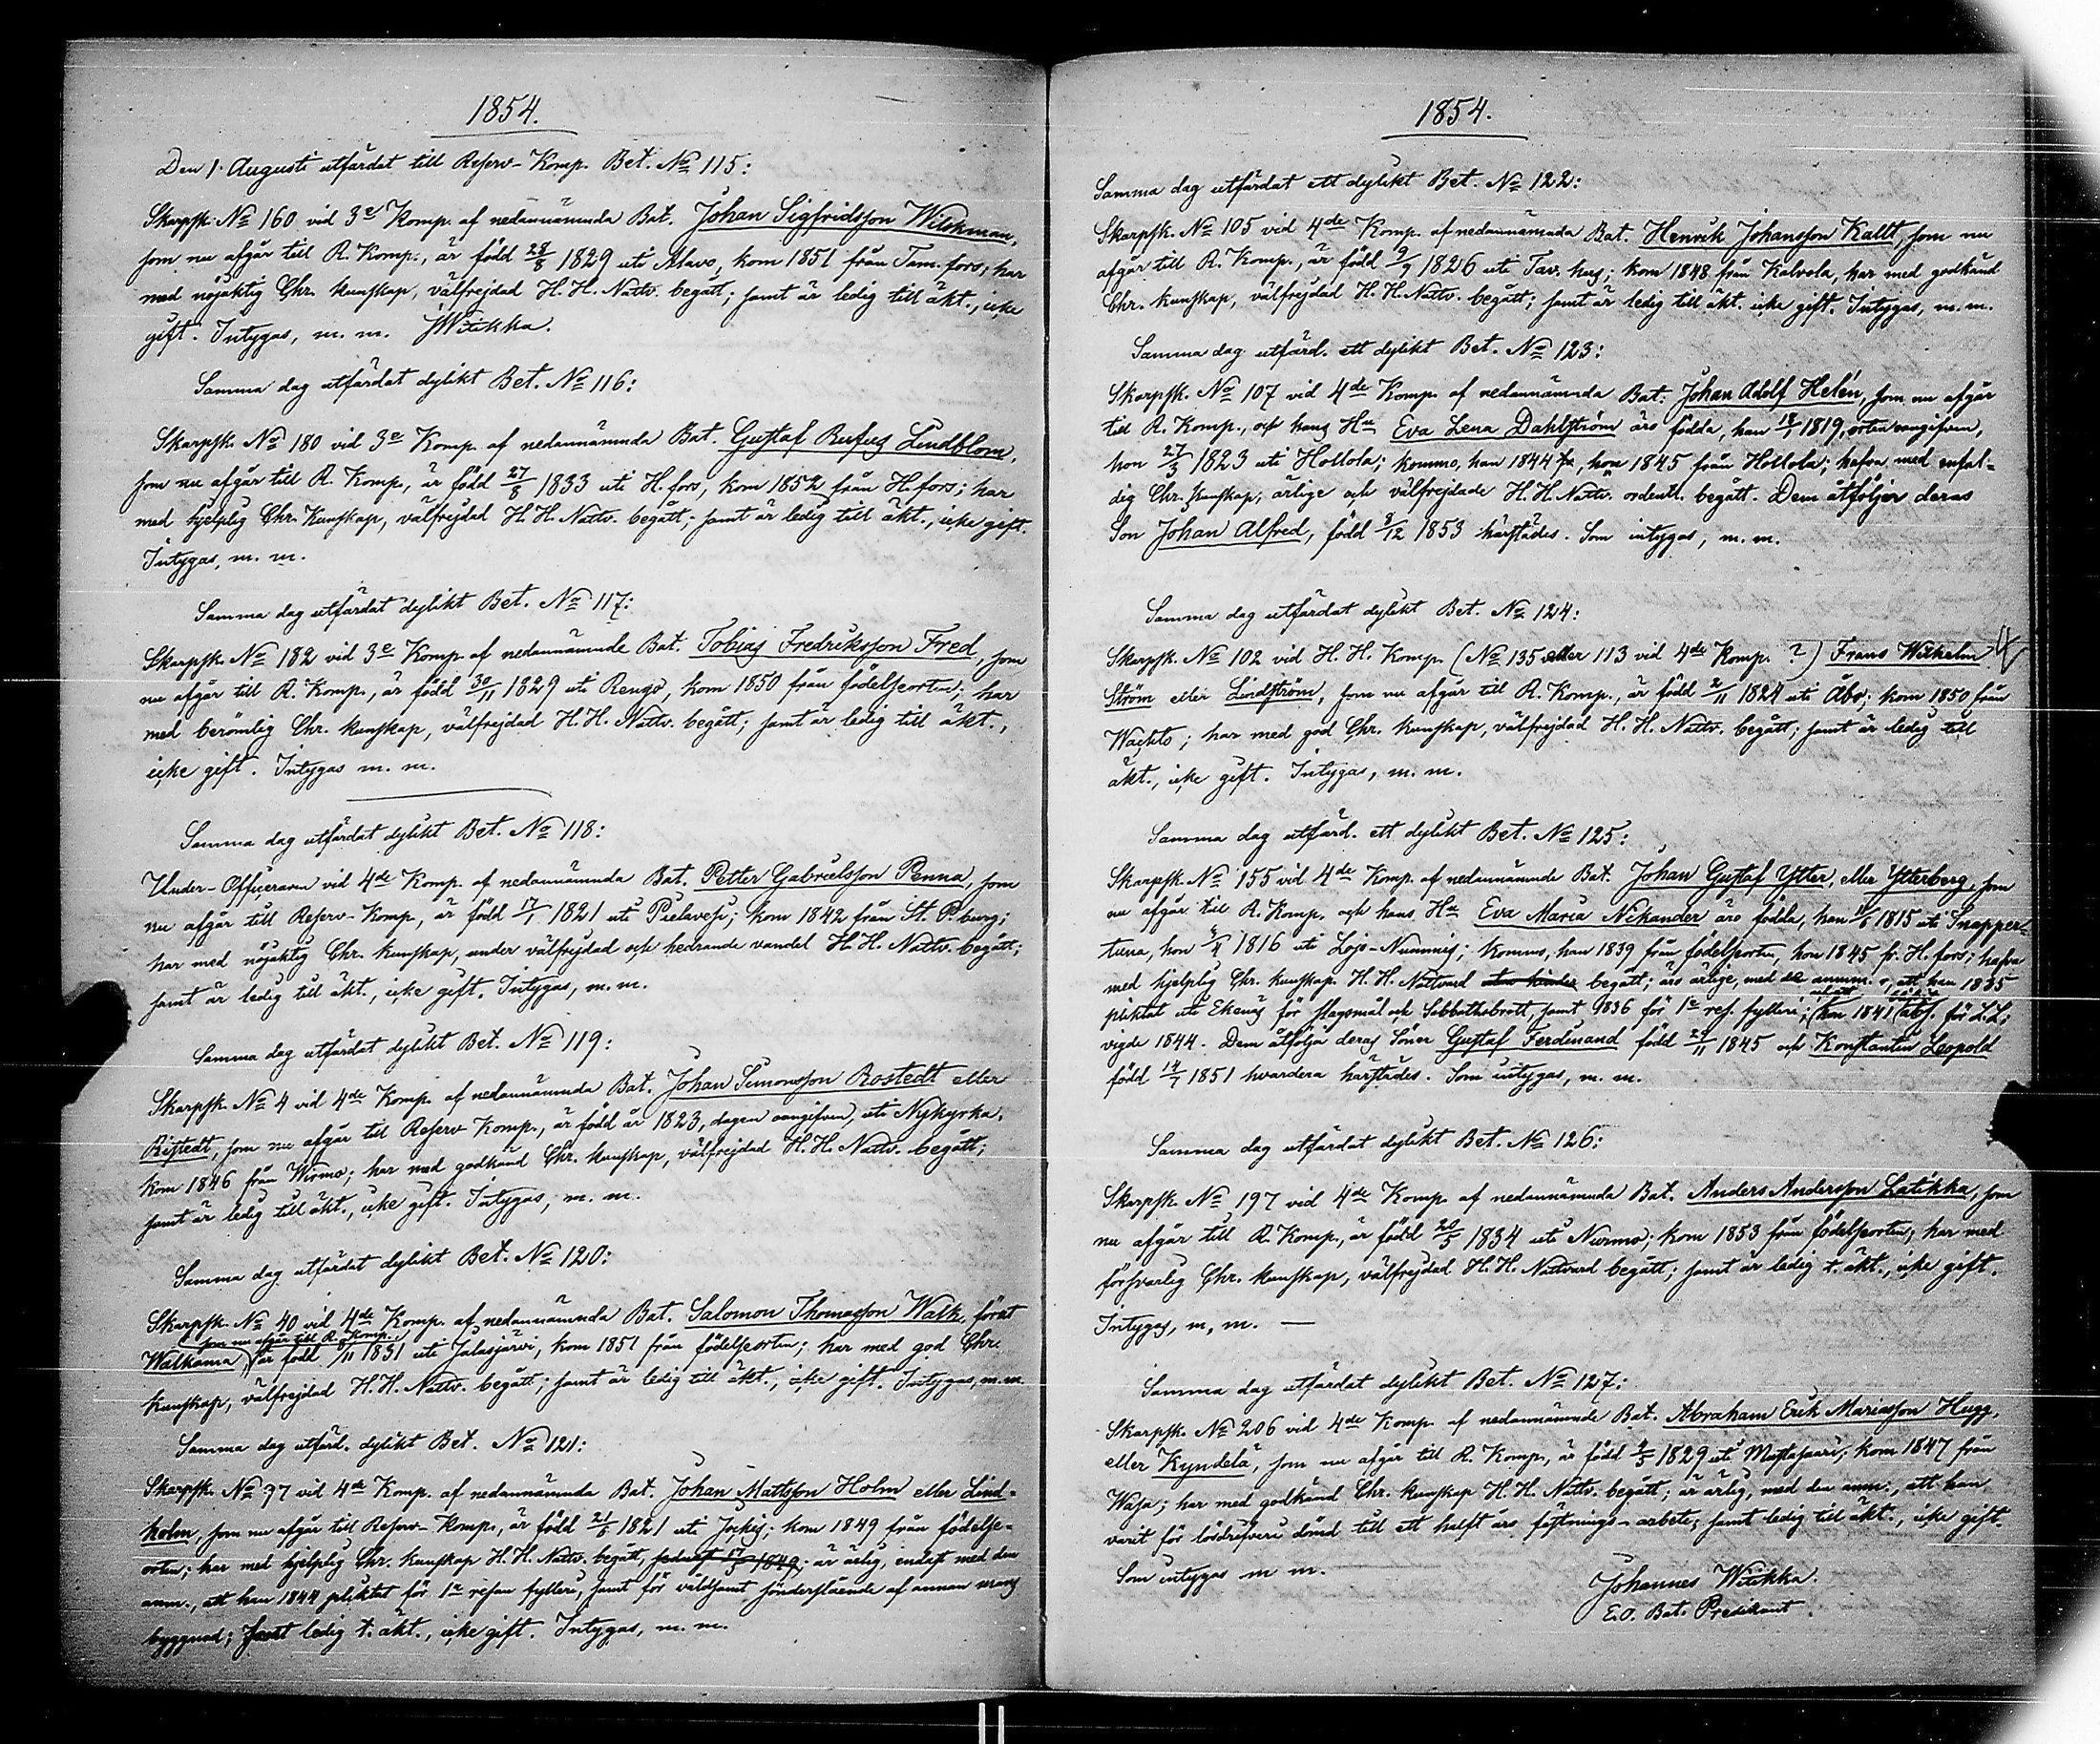 1854.
Den 1. Augusti utfärdat till Reserv-Komp. Bet. No 115:
Skarpsk. No 160 vid 3e Komp. af nedannämnda Bat. Johan Sigfridsson Wilskman,
som nu afgår till R. Komp., är född 28/8 1829 uti Alavo, kom 1851 från Tam.fors; har
med nöjaktig Chr. kunskap, välfrejdad H. H. Nattv. begått; samt är ledig till äkt., icke
gift. Intygas, m. m. JWitikka.
Samma dag utfärdat dylikt Bet. No 116:
Skarpsk. No 180 vid 3e Komp. af nedannämnda Bat. Gustaf Rufus Lindblom,
som nu afgår till R. Komp., är född 27/8 1833 uti H.fors, kom 1852 från H.fors; har
med hjelplig Chr. Kunskap, välfrejdad H. H. Nattv. begått; samt är ledig till äkt., icke gift.
Intygas, m. m.
Samma dag utfärdat dylikt Bet. No 117:
Skarpsk. No 182 vid 3e Komp. af nedannämnde Bat. Tobias Fredriksson Fred, som
nu afgår till R. Komp., är född 30/11 1829 uti Rengo, kom 1850 från födelseorten; har
med berömlig Chr. kunskap, välfrejdad H. H. Nattv. begått; samt är ledig till äkt.,
icke gift. Intygas m. m.
Samma dag utfärdat dylikt Bet. No 118:
Under-Officeraren vid 4de Komp. af nedannämnda Bat. Petter Gabrielsson Penna, som
nu afgår till Reserv-Komp., är född 17/1 1821 uti Pielavesi; kom 1842 från St. P.burg;
har med nöjaktig Chr. kunskap, under välfrejdad och hedrande vandel H. H. Nattv. begått;
samt är ledig till äkt., icke gift. Intygas, m. m.
Samma dag utfärdat dylikt Bet. No 119:
Skarpsk. No 4 vid 4de Komp. af nedannämnda Bat. Johan Simonsson Rostedt eller
Ristedt, som nu afgår till Reserv Komp., är född år 1823, dagen oangifven, uti Nykyrka,
kom 1846 från Wirmo; har med godkänd Chr. kunskap, välfrejdad H. H. Nattv. begått;
samt är ledig till äkt., icke gift. Intygas, m. m.
Samma dag utfärdat dylikt Bet. No 120:
Skarpsk. No 40 vid 4de Komp. af nedannämnda Bat. Salomon Thomasson Walk, förut
som nu afgår till R. Komp.
Walkama, är född /11 1831 uti Jalasjärvi, kom 1851 från födelseorten; har med god Chr.
kunskap, välfrejdad H. H. Nattv. begått; samt är ledig till äkt., icke gift. Intygas, m. m.
Samma dag utfärd. dylikt Bet. No 121:
Skarpsk. No 97 vid 4de Komp. af nedannämnda Bat. Johan Mattsson Holm eller Lind-
holm, som nu afgår till Reserv-Komp., är född 21/5 1821 uti Jockis; kom 1849 från födelse-
orten; har med hjelplig Chr. kunskap H. H. Nattv. begått, 1849; är ärlig, endast med den
anm., att han 1844 pliktat för 1a resan fylleri, samt för våldsamt sönderslående af annan mans
byggnad; samt ledig t. äkt., icke gift. Intygas, m. m.
1854.
Samma dag utfärdat ett dylikt Bet. No 122:
Skarpsk. No 105 vid 4de Komp. af nedannämnda Bat. Henrik Johansson Kallt, som nu
afgår till R. Komp., är född 9/9 1826 uti Tav. hus; kom 1848 från Kalvola, har med godkänd
Chr. kunskap, välfrejdad H. H. Nattv. begått; samt är ledig till äkt. icke gift. Intygas, m. m.
Samma dag utfärd. ett dylikt Bet. No 123:
Skarpsk. No 107 vid 4de Komp. af nedannämnda Bat. Johan Adolf Helén, som nu afgår
till R. Komp., och hans Hu Eva Lena Dahlström äro födda, han 18/1 1819, orten oangifven,
hon 27/3 1823 uti Hollola; kommo, han 1844 hon 1845 från Hollola; hafva med enfal-
dig Chr. Kunskap, ärlige och välfrejdade H. H. Nattv. ordentl. begått. Dem åtföljer deras
Son Johan Alfred, född 8/12 1853 härstädes. Som intygas, m. m.
Samma dag utfärdat dylikt Bet. No 124:
Skarpsk. No 102 vid H. H. Komp. (No 135 eller 113 vid 4de Komp. ?) Frans Wilhelm
Ström eller Lindström, som nu afgår till R. Komp., är född 2/11 1824 uti Åbo; kom 1850 från
Wachto; har med god Chr. kunskap, välfrejdad H. H. Nattv. begått; samt är ledig till
äkt., icke gift. Intygas, m. m.
Samma dag utfärd. ett dylikt Bet. No 125:
Skarpsk. No 155 vid 4de Komp. af nedannämnde Bat. Johan Gustaf Ytter, eller Ytterberg, som
nu afgår till R. Komp. och hans Hu Eva Maria Nikander äro födda, han 11/6 1815 uti Snapper-
tuna, hon 1816 uti Lojo-Nummis; kommo, han 1839 från födelseorten, hon 1845 fr. H. fors; hafva
med hjelplig Chr. kunskap H. H. Nattvard begått; äro ärlige, med de anmm., att han 1835
pliktat uti Ekenäs för slagsmål och Sabbathsbrott, samt 1836 för 1a res. fylleri; hon 1841 abs. för L.L;
vigde 1844. Dem åtfölja deras Söner Gustaf Ferdinand född 29/11 1845 och Konstantin Leopold
född 14/7 1851 hvardera härstädes. Som intygas, m. m.
Samma dag utfärdat dylikt Bet. No 126:
Skarpsk. No 197 vid 4de Komp. af nedannämnda Bat. Anders Andersson Latikka, som
nu afgår till R. Komp., är född 20/5 1834 uti Nurmo; kom 1853 från födelseorten; har med
försvarlig Chr. kunskap, välfrejdad H. H. Nattvard begått; samt är ledig t. äkt., icke gift.
Intygas, m. m. —
Samma dag utfärdat dylikt Bet. No 127:
Skarpsk. No 206 vid 4de Komp. af nedannämnde Bat. Abraham Erik Mariasson Hugg,
eller Kyndelä, som nu afgår till R. Komp., är född 4/5 1829 uti Mustasaari; kom 1847 från
Wasa; har med godkänd Chr. kunskap H. H. Nattv. begått; är ärlig, med den anm., att han
varit för lösdrifveri dömd till ett halft års fästnings-arbete; samt ledig till äkt., icke gift.
Som intygas m m.
Johannes Witikka.
E.O. Bat. Predikant.